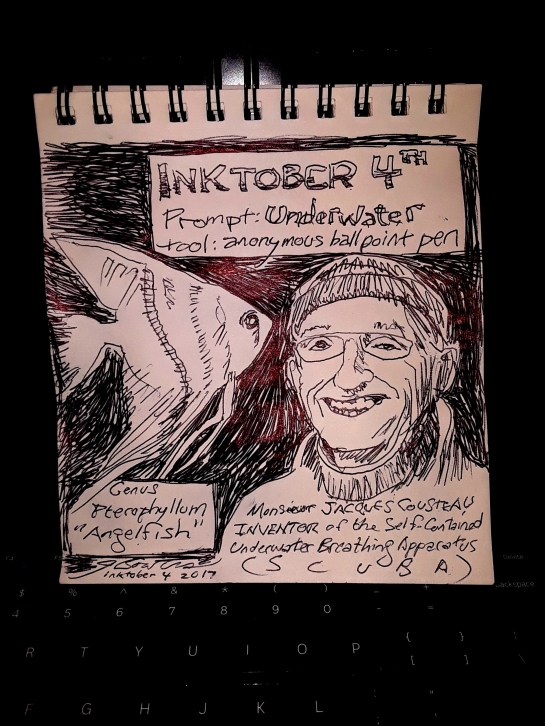 INKTOBER 4TH
Prompt: Underwater
tool: anonymous ballpoint pen
Genus
Pterophyllum
"Angelfish"
inktober 4 2017
Monsieur JACQUES COUSTEAU
INVENTOR of the Self-Contained
Underwater Breathing Apparatus
(S C U B A)
$ % ^ & * ( ) _ +
4 5 6 7 8 9 0 - =
Backspace
R T Y U I O P { }
[ ]
F G H J K L "